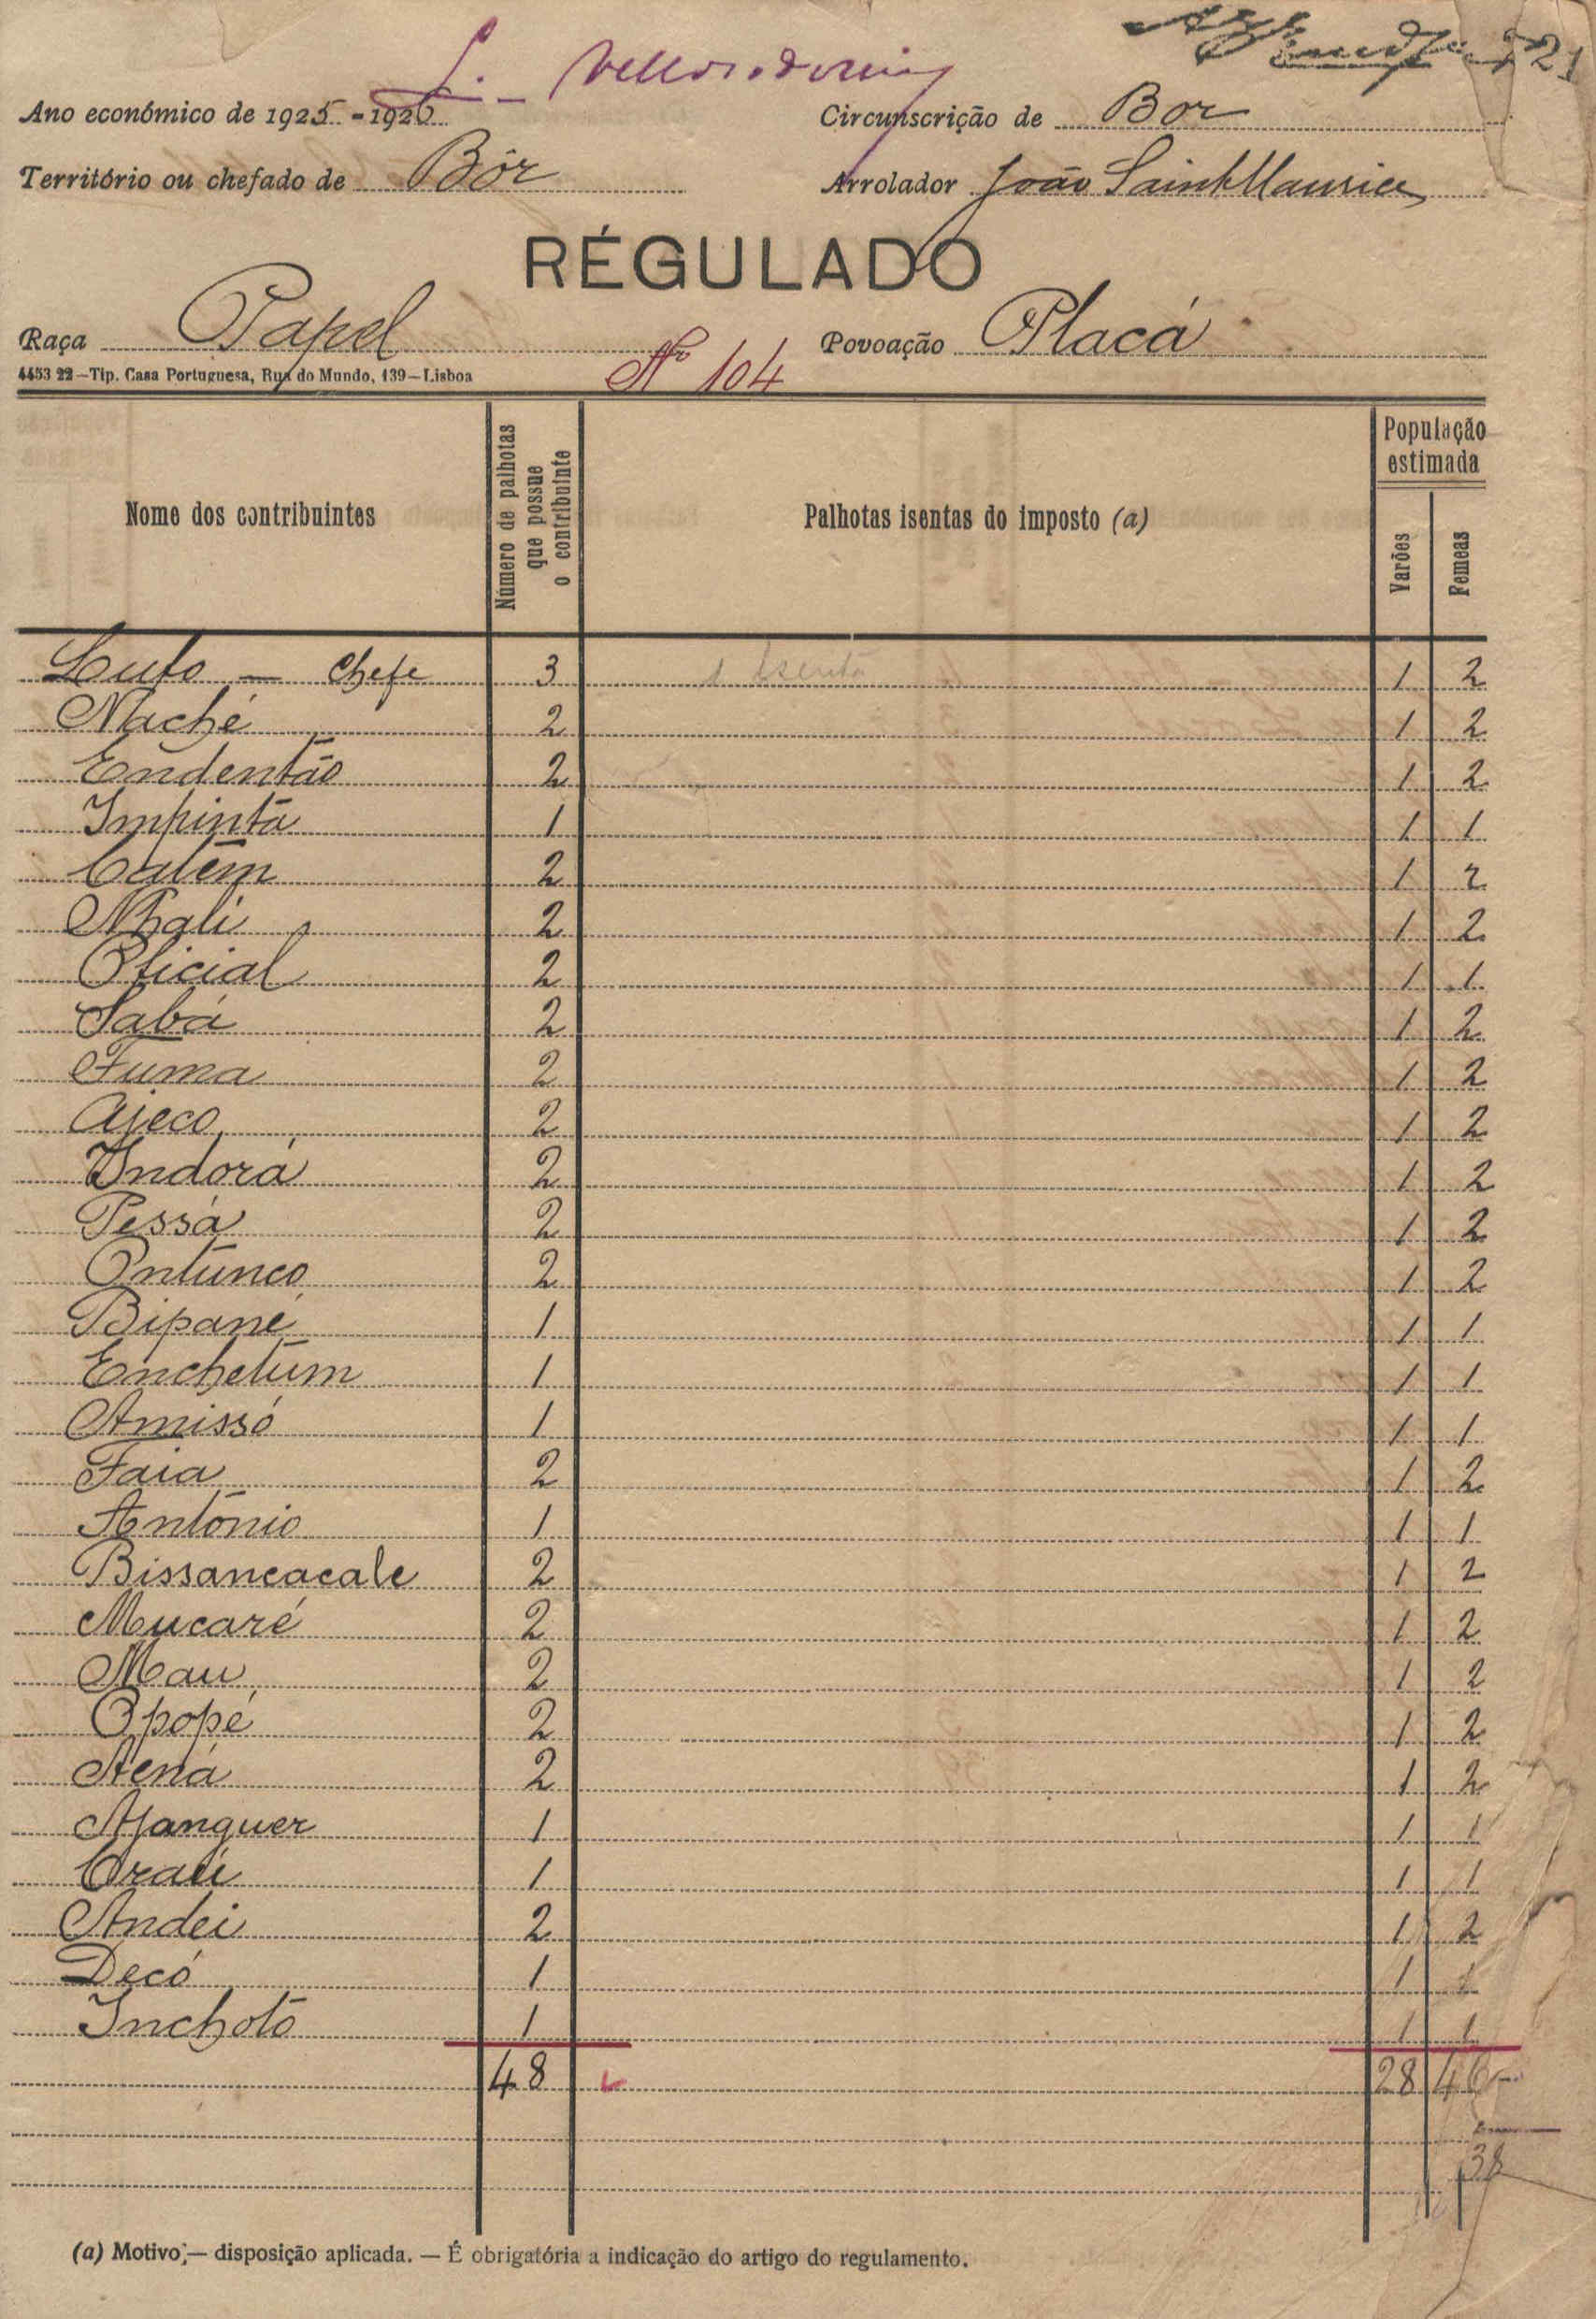 Ano económico de 1925-1926 Circunscrição de Bor
Território ou chefado de Bôr Arrolador João Saint Maurice
RÉGULADO
Raça Papel Povoação Placá
4453 22—Tip. Casa Portuguesa, Rua do Mundo, 139—Lisboa Nº 104
Nome dos contribuintes Número de palhotas que possue o contribuinte Palhotas isentas do imposto (a) População estimada Varões Femeas
Lufo — Chefe 3 1 Isento 1 2
Maché 2 1 2
Endentão 2 1 2
Impintá 1 1 1
Catem 2 1 2
Nhali 2 1 2
Oficial 2 1 1
Sabá 2 1 2
Fuma 2 1 2
Ajeco 2 1 2
Indorá 2 1 2
Pessá 2 1 2
Ontunco 2 1 2
Bipané 1 1 1
Enchetum 1 1 1
Amissó 1 1 1
Faia 2 1 2
António 1 1 1
Bissancacale 2 1 2
Mucaré 2 1 2
Mau 2 1 2
Opopé 2 1 2
Aená 2 1 2
Ajanquer 1 1 1
1 1 1
Andei 2 1 2
Decó 1 1 1
Inchotó 1 1 1
48 28 46
38
(a) Motivo;— disposição aplicada. — É obrigatória a indicação do artigo do regulamento.